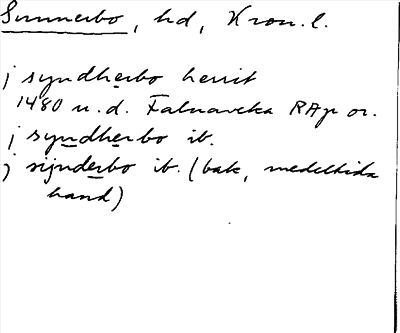 Sunnerbo, hd, Kron. l.
j syndherbo herrit
1480 u. d. Falnaveka RAp or.
j syndherbo ib.
j sijnderbo ib. (bak, medeltida
hand)